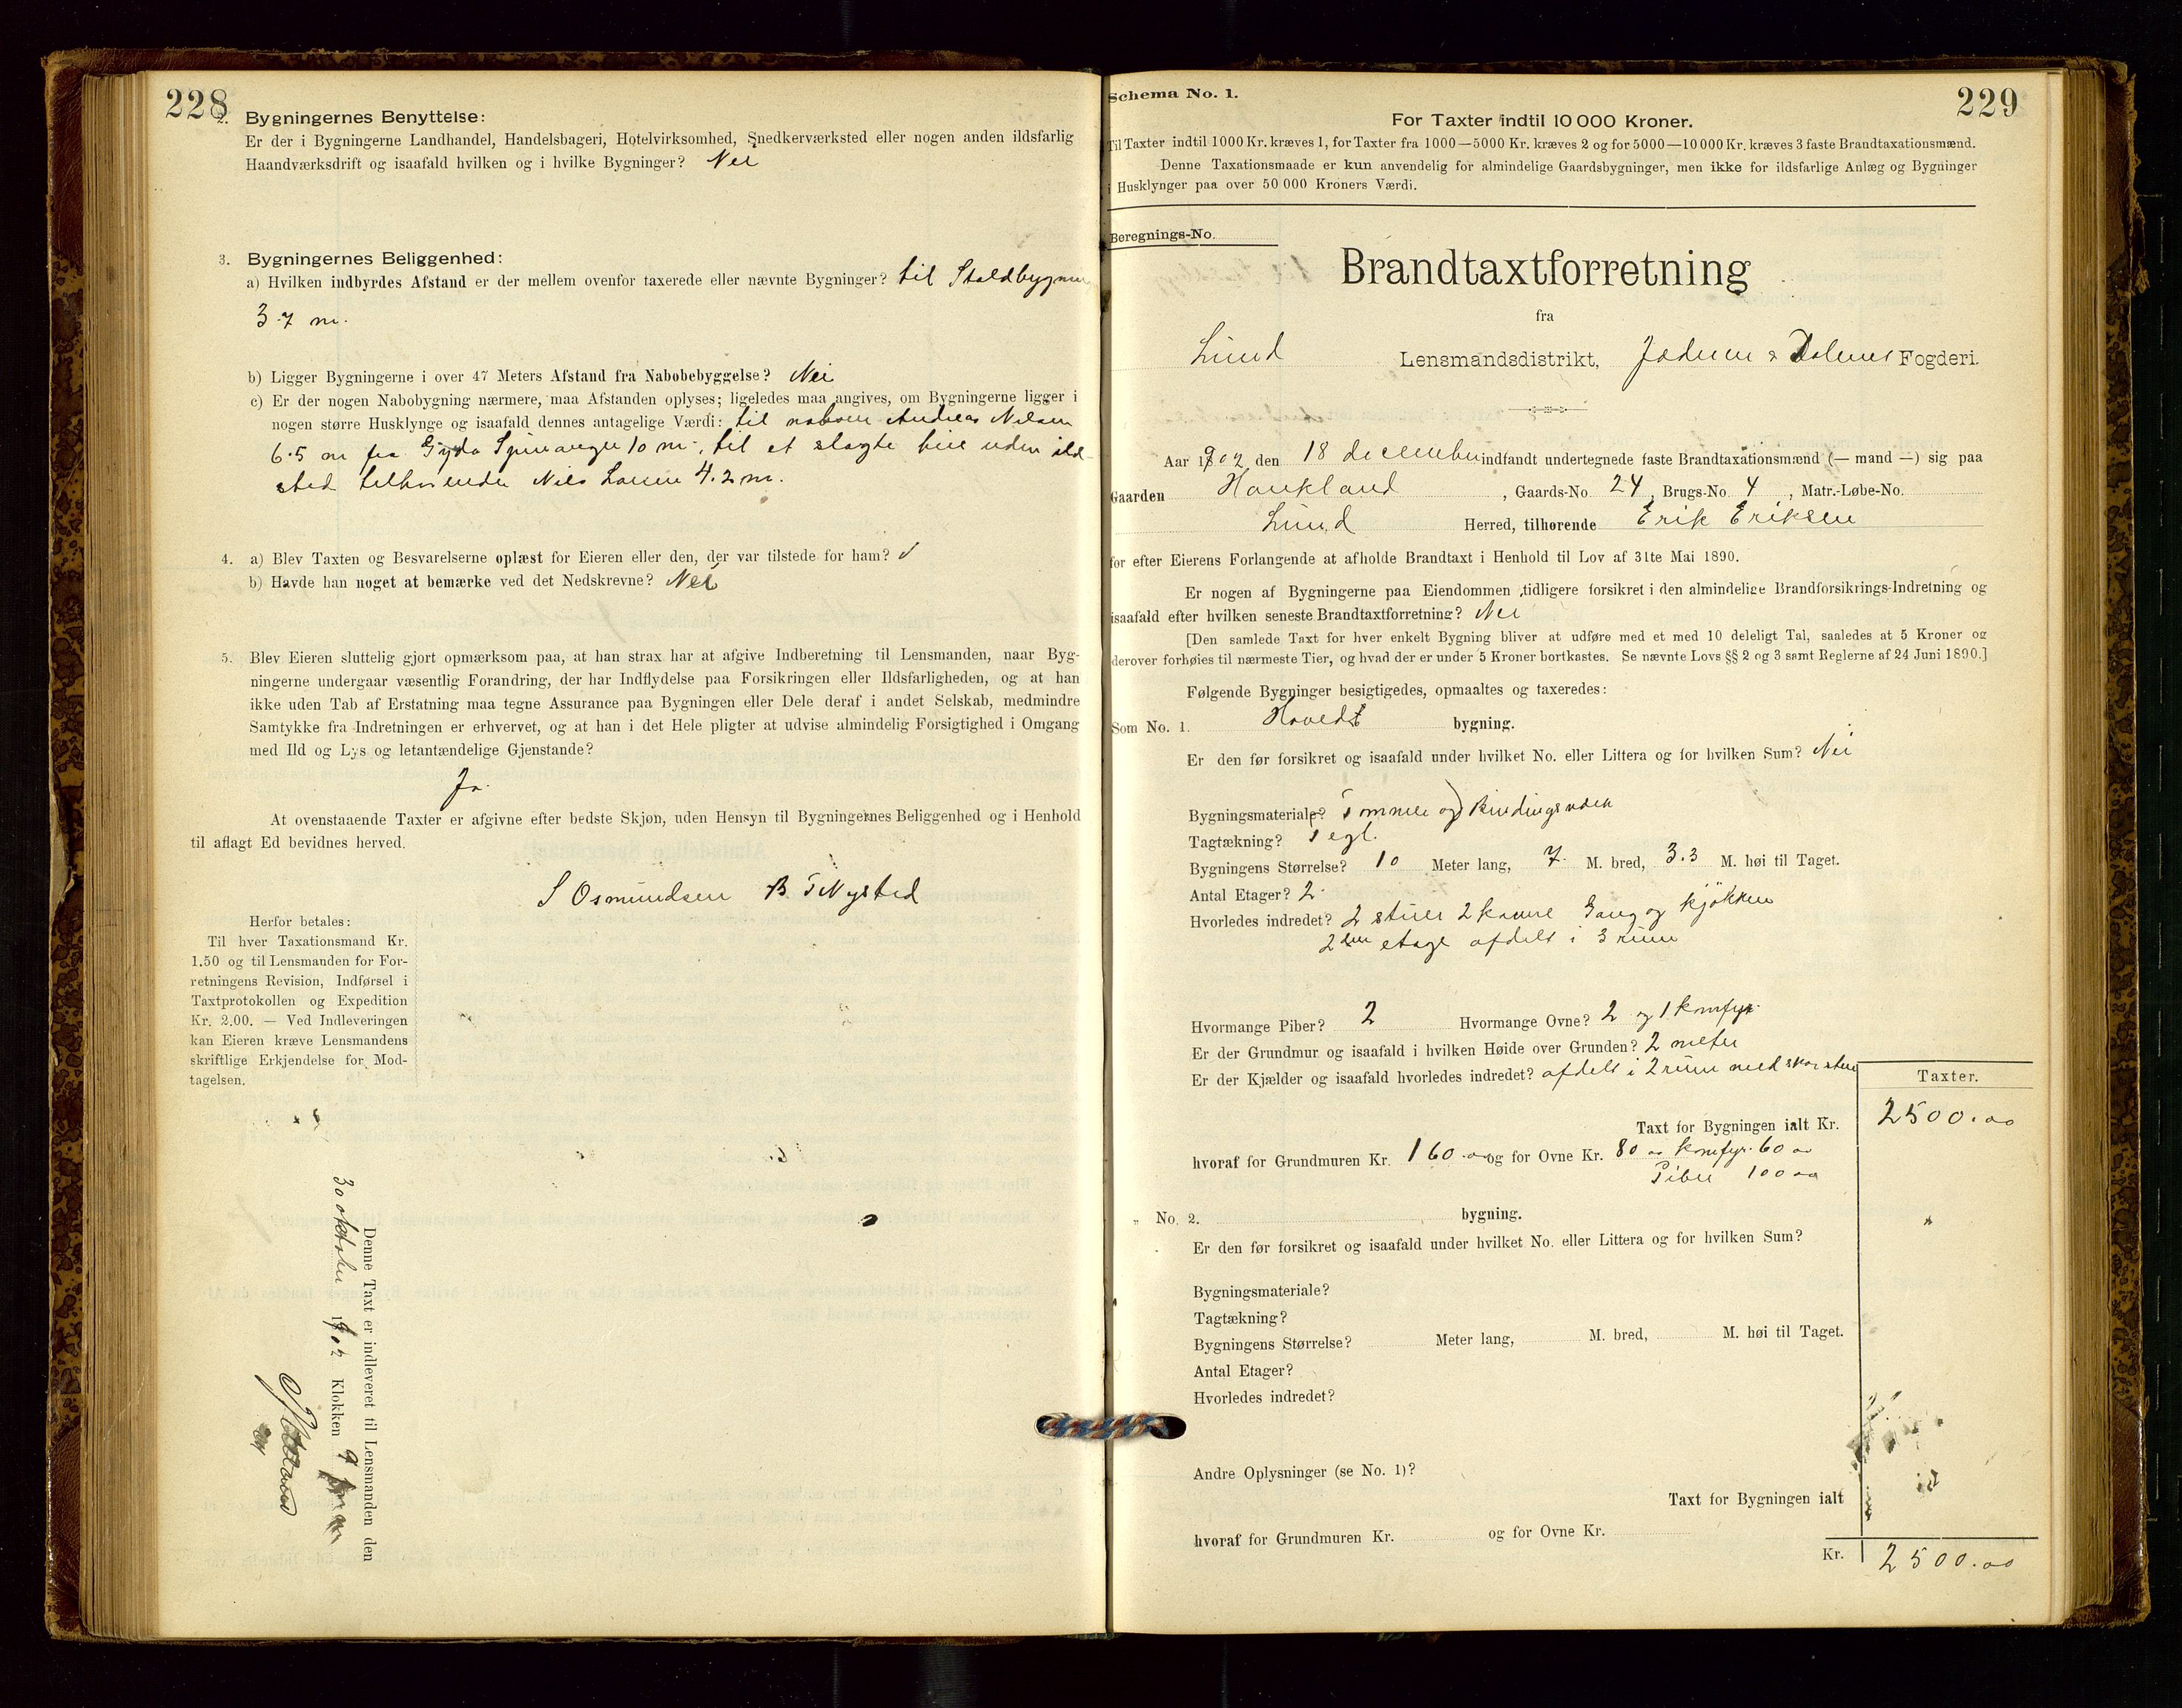 228
2. Bygningernes Benyttelse:
Er der i Bygningerne Landhandel, Handelsbageri, Hotelvirksomhed, Snedkerværksted eller nogen anden ildsfarlig
Haandværksdrift og isaafald hvilken og i hvilke Bygninger? Nei
3. Bygningernes Beliggenhed:
a) Hvilken indbyrdes Afstand er der mellem ovenfor taxerede eller nævnte Bygninger? til Staldbygnin
3.7 m.
b) Ligger Bygningerne i over 47 Meters Afstand fra Nabobebyggelse? Nei
c) Er der nogen Nabobygning nærmere, maa Afstanden oplyses; ligeledes maa angives, om Bygningerne ligger i
nogen større Husklynge og isaafald dennes antagelige Værdi: til naboen Andreas Nilsen
6.5 m fra Gyda 10 m, til et slagte hus uden ild-
sted tilhørende Nils 4.2 m.
4. a) Blev Taxten og Besvarelserne oplæst for Eieren eller den, der var tilstede for ham?
b) Havde han noget at bemærke ved det Nedskrevne? Nei
5. Blev Eieren sluttelig gjort opmærksom paa, at han strax har at afgive Indberetning til Lensmanden, naar Byg-
ningerne undergaar væsentlig Forandring, der har Indflydelse paa Forsikringen eller Ildsfarligheden, og at han
ikke uden Tab af Erstatning maa tegne Assurance paa Bygningen eller Dele deraf i andet Selskab, medmindre
Samtykke fra Indretningen er erhvervet, og at han i det Hele pligter at udvise almindelig Forsigtighed i Omgang
med Ild og Lys og letantændelige Gjenstande?
Ja
At ovenstaaende Taxter er afgivne efter bedste Skjøn, uden Hensyn til Bygningernes Beliggenhed og i Henhold
til aflagt Ed bevidnes herved.
S Osmundsen B T Nysted
Herfor betales:
Til hver Taxationsmand Kr.
1.50 og til Lensmanden for For-
retningens Revision, Indførsel i
Taxtprotokollen og Expedition
Kr. 2.00. — Ved Indleveringen
kan Eieren kræve Lensmandens
skriftlige Erkjendelse for Mod-
tagelsen.
Denne Taxt er indleveret til Lensmanden den
30 oktober 1902 Klokken 9
Schema No. 1.
229
For Taxter indtil 10 000 Kroner.
Til Taxter indtil 1000 Kr. kræves 1, for Taxter fra 1000—5000 Kr. kræves 2 og for 5000—10000 Kr. kræves 3 faste Brandtaxationsmænd.
Denne Taxationsmaade er kun anvendelig for almindelige Gaardsbygninger, men ikke for ildsfarlige Anlæg og Bygninger
i Husklynger paa over 50 000 Kroners Værdi.
Beregnings-No.
Brandtaxtforretning
fra
Lund Lensmandsdistrikt, Jæderen & Dalernes Fogderi.
Aar 1902, den 18 december indfandt undertegnede faste Brandtaxationsmænd (— mand —) sig paa
Gaarden Haukland, Gaards-No. 24, Brugs-No. 4, Matr.-Løbe-No.
Lund Herred, tilhørende Erik Eriksen
for efter Eierens Forlangende at afholde Brandtaxt i Henhold til Lov af 31te Mai 1890.
Er nogen af Bygningerne paa Eiendommen tidligere forsikret i den almindelige Brandforsikrings-Indretning og
isaafald efter hvilken seneste Brandtaxtforretning? Nei
[Den samlede Taxt for hver enkelt Bygning bliver at udføre med et med 10 deleligt Tal, saaledes at 5 Kroner og
derover forhøies til nærmeste Tier, og hvad der er under 5 Kroner bortkastes. Se nævnte Lovs §§ 2 og 3 samt Reglerne af 24 Juni 1890.]
Følgende Bygninger besigtigedes, opmaaltes og taxeredes:
Som No. 1. Hoveds bygning.
Er den før forsikret og isaafald under hvilket No. eller Littera og for hvilken Sum? Nei
Bygningsmateriale? Tømmer og Bindingsverk
Tagtækning? Tegl.
Bygningens Størrelse? 10 Meter lang, 7 M. bred, 3.3 M. høi til Taget.
Antal Etager? 2
Hvorledes indredet? 2 stuer 2 kamre Gang og kjøkken
2den etage afdelt i 3 rum
Hvormange Piber? 2 Hvormange Ovne? 2 og 1 komfyr
Er der Grundmur og isaafald i hvilken Høide over Grunden? 2 meter
Er der Kjælder og isaafald hvorledes indredet? afdelt i 2 rum med skorsten
Taxter.
Taxt for Bygningen ialt Kr. 2500.00
hvoraf for Grundmuren Kr. 160.00 og for Ovne Kr. 80 00 komfyr 60 00
Piber 100 00
„ No. 2. bygning.
Er den før forsikret og isaafald under hvilket No. eller Littera og for hvilken Sum?
Bygningsmateriale?
Tagtækning?
Bygningens Størrelse? Meter lang, M. bred, M. høi til Taget.
Antal Etager?
Hvorledes indredet?
Andre Oplysninger (se No. 1)?
Taxt for Bygningen ialt
hvoraf for Grundmuren Kr. og for Ovne Kr.
Kr. 2500.00